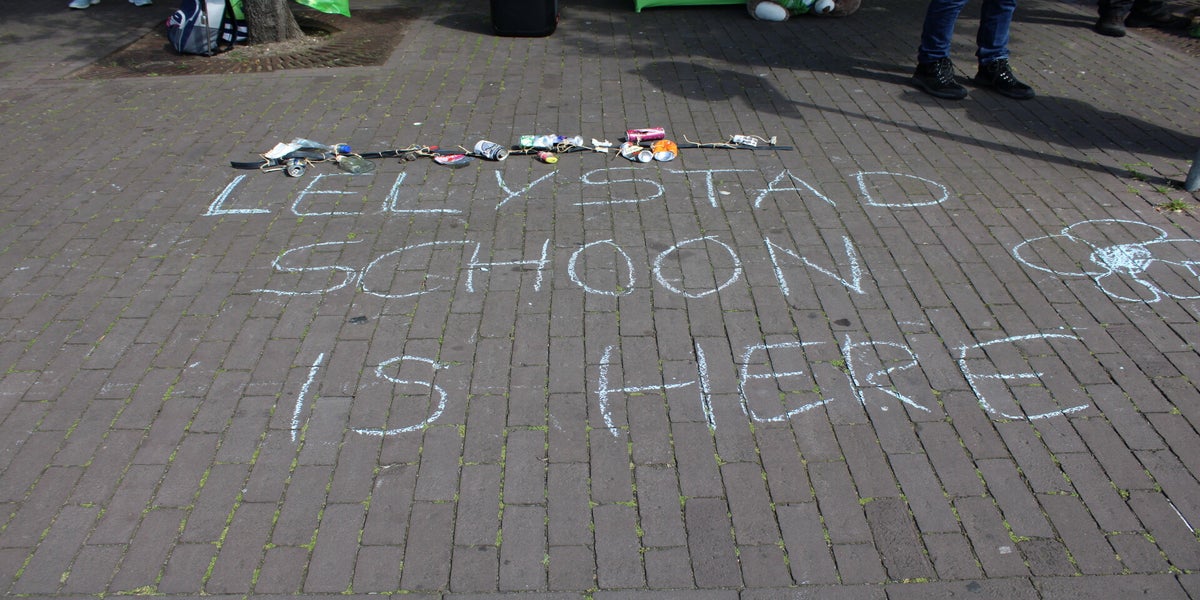 LELYSTAD
SCHOON
IS HERE